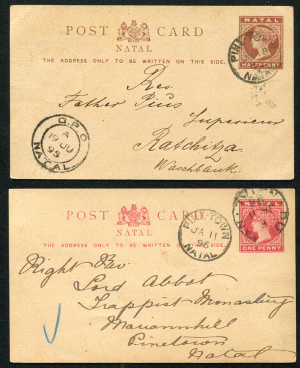 NATAL
POST CARD
NATAL
HALFPENNY
THE ADDRESS ONLY TO BE WRITTEN ON THIS SIDE.
NATAL
Rev.
Father Pius
Superieur
Ratchitza
Waschbank
G.P.O
A
JU
95
NATAL
NATAL
POST CARD
NATAL
ONE PENNY
THE ADDRESS ONLY TO BE WRITTEN ON THIS SIDE.
PINE-TOWN
JA 11
96
NATAL
Right Rev
Lord Abbot
Trappist Monastery
Mariannhill
Pinetown
Natal